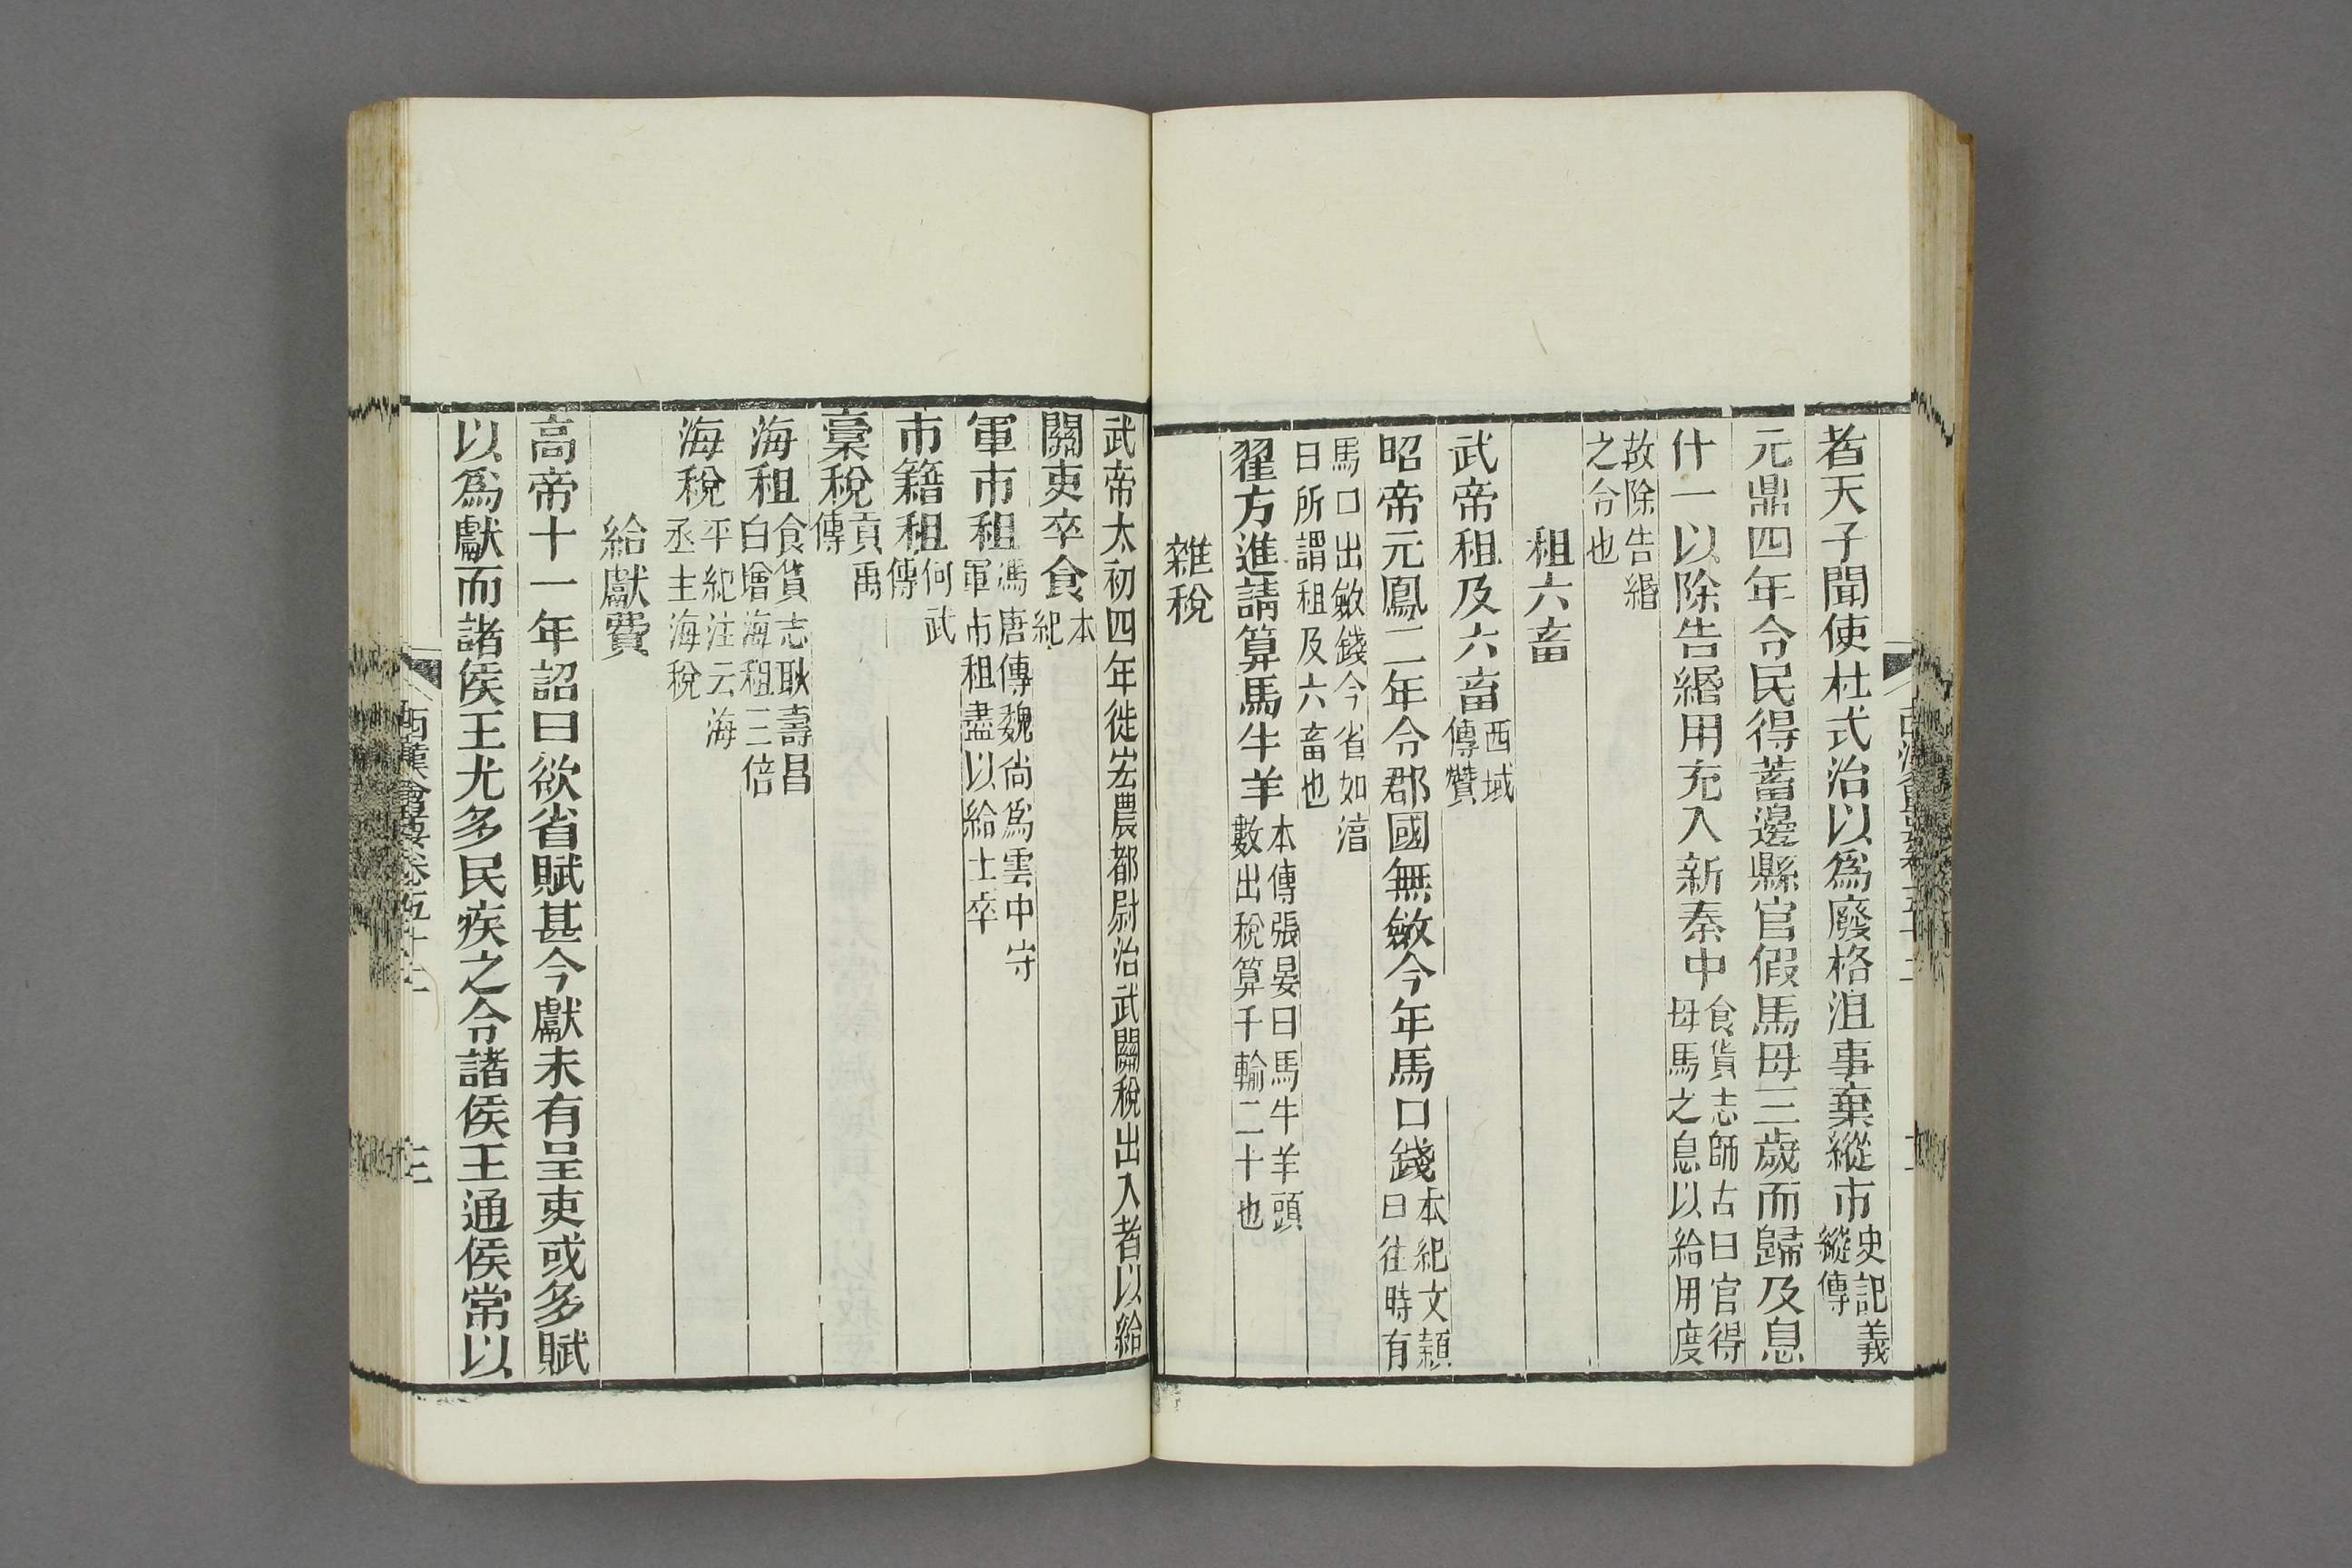 者天子聞使杜式治以爲廢格沮事棄縱市史記義縱傳
元鼎四年令民得蓄邊縣官假馬母三歲而歸及息
什一以除告緡用充入新秦中食貨志師古曰官得母馬之息以給用度
故除告緡之令也
租六畜
武帝租及六畜西域傳贊
昭帝元鳳二年令郡國無斂今年馬口錢本紀文穎曰往時有
馬口出斂錢今省如湻曰所謂租及六畜也
翟方進請算馬牛羊本傳張晏曰馬牛羊頭數出稅算千輸二十也
雜稅
武帝太初四年徙宏農都尉治武關稅出入者以給
關吏卒食本紀
軍市租馮唐傳魏尚爲雲中守軍市租盡以給士卒
市籍租何武傳
稾稅貢禹傳
海租食貨志耿壽昌白增海租三倍
海稅平紀注云海丞主海稅
給獻費
高帝十一年詔曰欲省賦甚今獻未有呈吏或多賦
以爲獻而諸侯王尤多民疾之令諸侯王通侯常以
西漢會要卷五十二
三